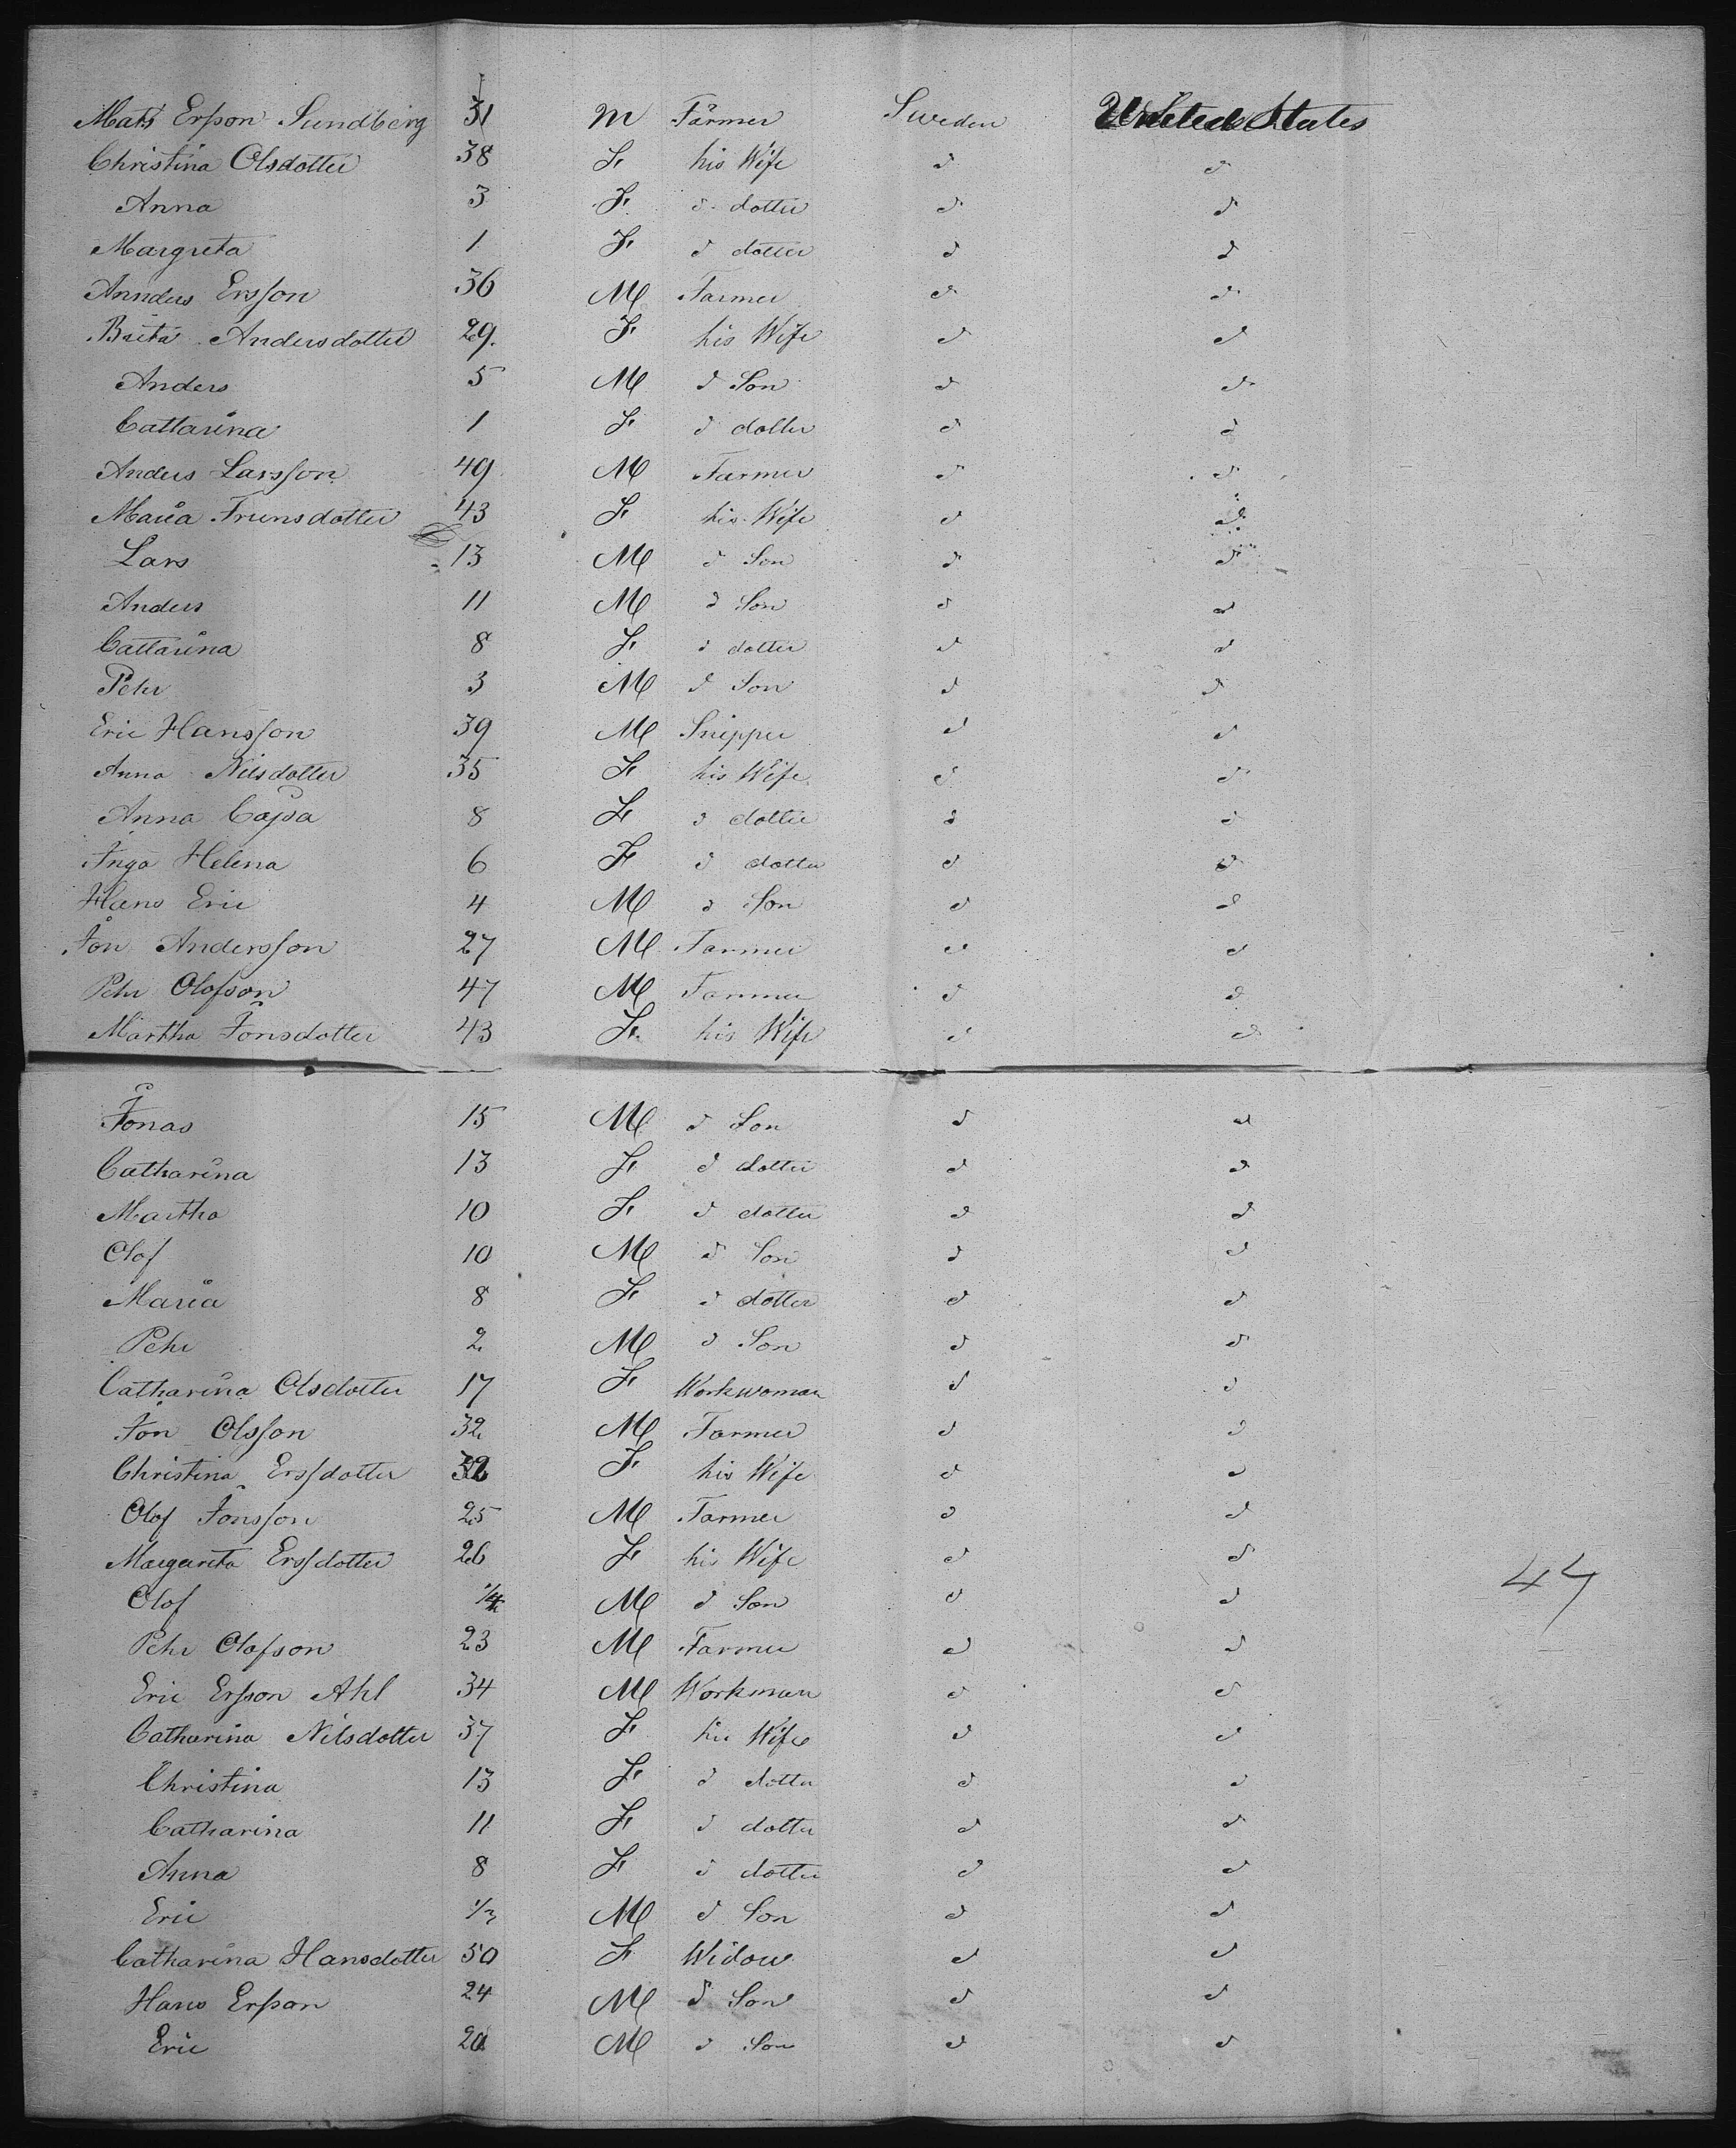 Mats Ersson Sundberg 31 M Farmer Sweden United States
Christina Olsdotter 38 F. his Wife d d
Anna 3 F. d dotter d d
Margreta 1 F. d dotter d d
Annders Ersson 36 M Farmer d d
Brita Andersdotter 29. F. his Wife d d
Anders 5 M d Son d d
Cattarina 1 F. d dotter d d
Anders Larsson 49 M Farmer d d
Maria Frunsdotter 43 F. his Wife d d
Lars 13 M d Son d d
Anders 11 M d Son d d
Cattarina 8 F. d dotter d d
Pehr 3 M d Son d d
Eric Hansson 39 M Snipper d d
Anna Nilsdotter 35 F. his Wife d d
Anna Cajsa 8 F. d dotter d d
Inga Helena 6 F d dotter d d
Hans Eric 4 M d Son d d
Jon Andersson 27 M Farmer d d
Pehr Olofson 47 M Farmer d d
Martha Jonsdotter 43 F. his Wife d d
Jonas 15 M d Son d d
Catharina 13 F. d dotter d d
Martha 10 F. d dotter d d
Olof 10 M d Son d d
Maria 8 F. d dotter d d
Pehr 2 M d Son d d
Catharina Olsdotter 17 F Workwoman d d
Jon Olsson 32 M Farmer d d
Christina Ersdotter 32 F. his Wife d d
Olof Jonsson 25 M Farmer d d
Margareta Ersdotter 26 F. his Wife d d
Olof 1/4 M d Son d d
47
Pehr Olofson 23 M Farmer d d
Eric Ersson Ahl 34 M Workman d d
Catharina Nilsdotter 37 F. his Wife d d
Christina 13 F. d dotter d d
Catharina 11 F. d dotter d d
Anna 8 F. d dotter d d
Eric 1/3 M d Son d d
Catharina Hansdotter 50 F Widow d d
Hans Ersson 24 M d Son d d
Eric 20 M d Son d d